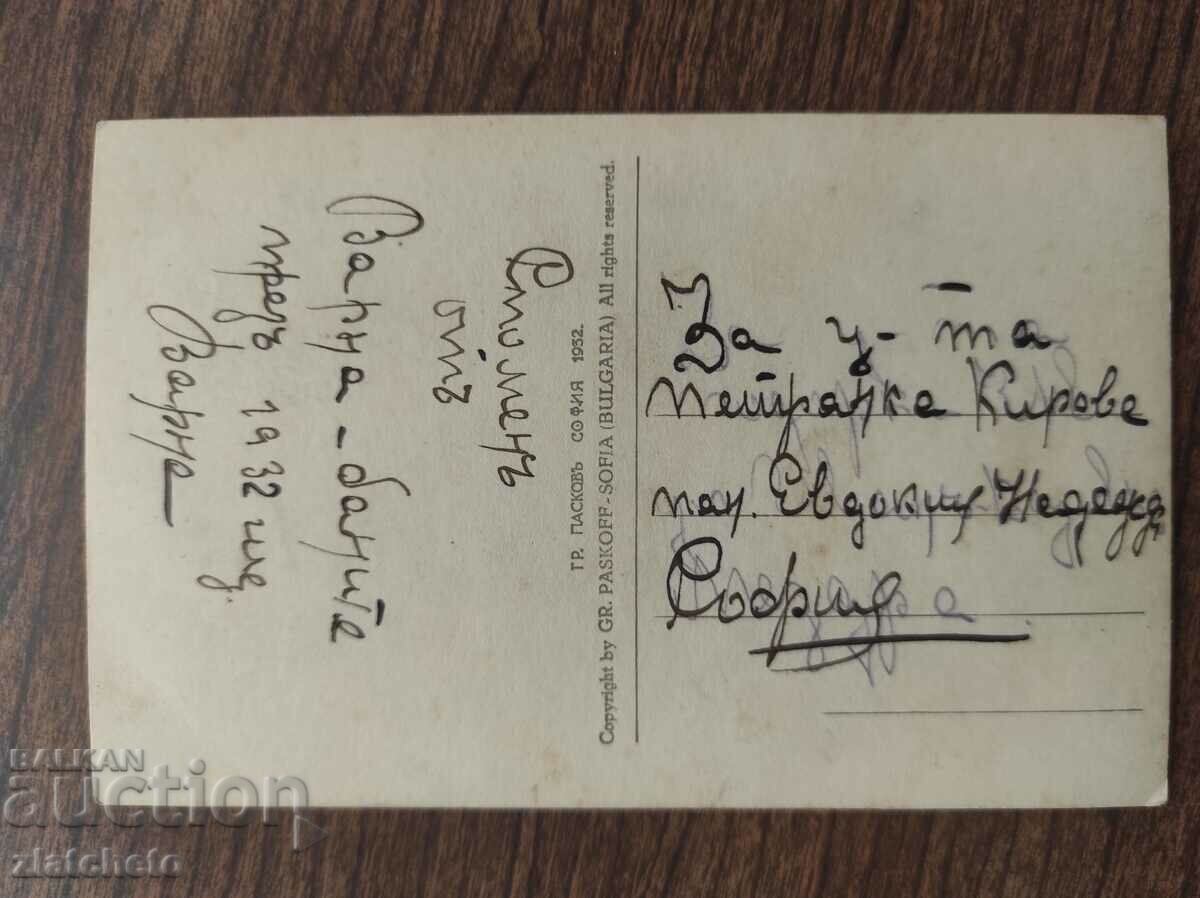 Споменъ
отъ
Варна - баните
презъ 1932 год.
Варна
ГР. ПАСКОВЪ СОФИЯ 1932.
Copyright by GR. PASKOFF-SOFIA (BULGARIA) All rights reserved.
За г-ца
Петранка Кирова
пан. Евдокия
София
BALKAN
auction
zlatcheto